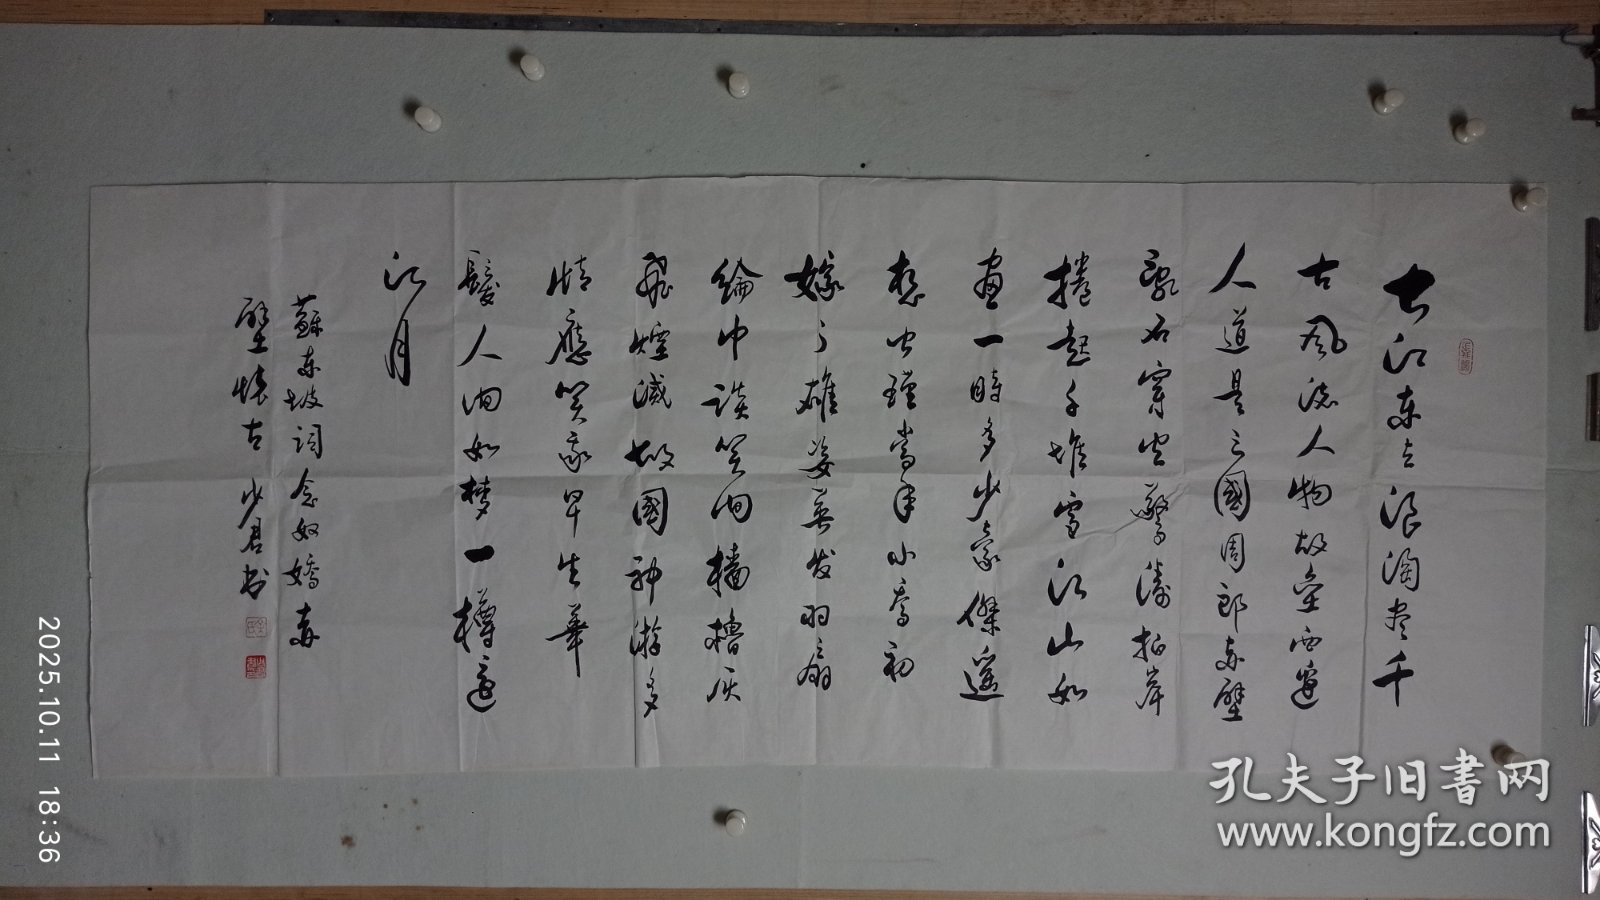 大江东去浪淘尽千
古風流人物故垒西邊
人道是三國周郎赤壁
亂石穿空驚濤拍岸
捲起千堆雪江山如
畫一時多少豪傑遥
想公瑾當年小喬初
嫁了雄姿英发羽扇
綸巾談笑间檣櫓灰
飛煙滅故國神游多
情應笑我早生華
髮人间如梦一樽還
江月
蘇东坡詞念奴嬌赤
壁懷古 少君书
2025.10.11 18:36
孔夫子旧書网
www.kongfz.com